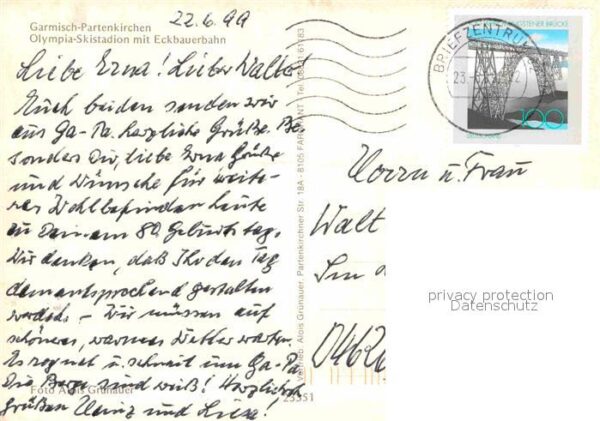 22.6.99
Garmisch-Partenkirchen
Olympia-Skistadion mit Eckbauerbahn
Liebe Erna! Lieber Walter!
Euch beiden senden wir
aus Ga-Pa. herzliche Grüße. Be-
sonders Dir, liebe Erna Grüße
und Wünsche für weite-
res Wohlbefinden heute
zu Deinem 80. Geburtstag.
Wir denken, daß Ihr den Tag
dementsprechend gestalten
werdet. – Wir müssen auf
schöneres, warmes Wetter warten.
Es regnet u. schneit um Ga-Pa.
Die Berge sind weiß! Herzlichst
grüßen Heinz und Liesa!
Foto Alois Grunauer
23551
Vertrieb: Alois Grünauer, Partenkirchner Str. 18A - 8105 FARCHANT Tel. 08821/6183
BRIEFZENTRUM
23.
MÜNGSTENER BRÜCKE
100
Herrn u. Frau
Walt
Im
0462
privacy protection
Datenschutz